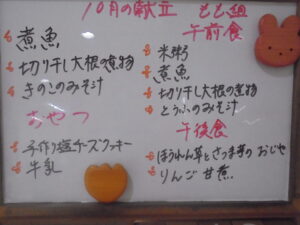 10月の献立 もも組
煮魚
切り干し大根の煮物
きのこのみそ汁
おやつ
手作り塩チーズクッキー
牛乳
午前食
米粥
煮魚
切り干し大根の煮物
とうふのみそ汁
午後食
ほうれん草とさつま芋のおじや
りんご甘煮